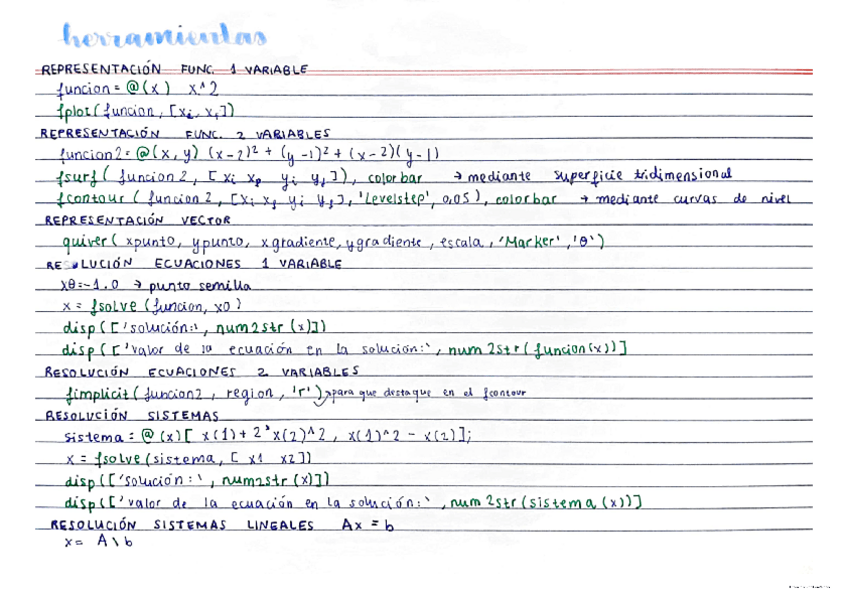 herramientas
REPRESENTACIÓN FUNC. 1 VARIABLE
funcion = @(x) x^2
fplot(funcion, [xi, xf])
REPRESENTACIÓN FUNC. 2 VARIABLES
funcion2 = @(x,y) (x-2)² + (y-1)² + (x-2)(y-1)
fsurf( funcion2, [xi xf yi yf]), colorbar → mediante superficie tridimensional
fcontour( funcion2, [xi xf yi yf], 'Levelstep', 0,05), colorbar → mediante curvas de nivel
REPRESENTACIÓN VECTOR
quiver( xpunto, ypunto, xgradiente, ygradiente, escala, 'Marker', 'o')
RESOLUCIÓN ECUACIONES 1 VARIABLE
x0=-1.0 → punto semilla
x = fsolve (funcion, x0)
disp(['solución:', num2str (x)])
disp(['valor de la ecuación en la solución:', num2str(funcion(x))]
RESOLUCIÓN ECUACIONES 2 VARIABLES
fimplicit( funcion2, region, 'r') → para que destaque en el fcontour
RESOLUCIÓN SISTEMAS
sistema = @(x)[ x(1)+2*x(2)^2, x(1)^2 - x(2)];
x = fsolve(sistema, [ x1 x2])
disp(['solución:', num2str (x)])
disp(['valor de la ecuación en la solución:', num2str(sistema(x))]
RESOLUCIÓN SISTEMAS LINEALES Ax = b
x = A\b